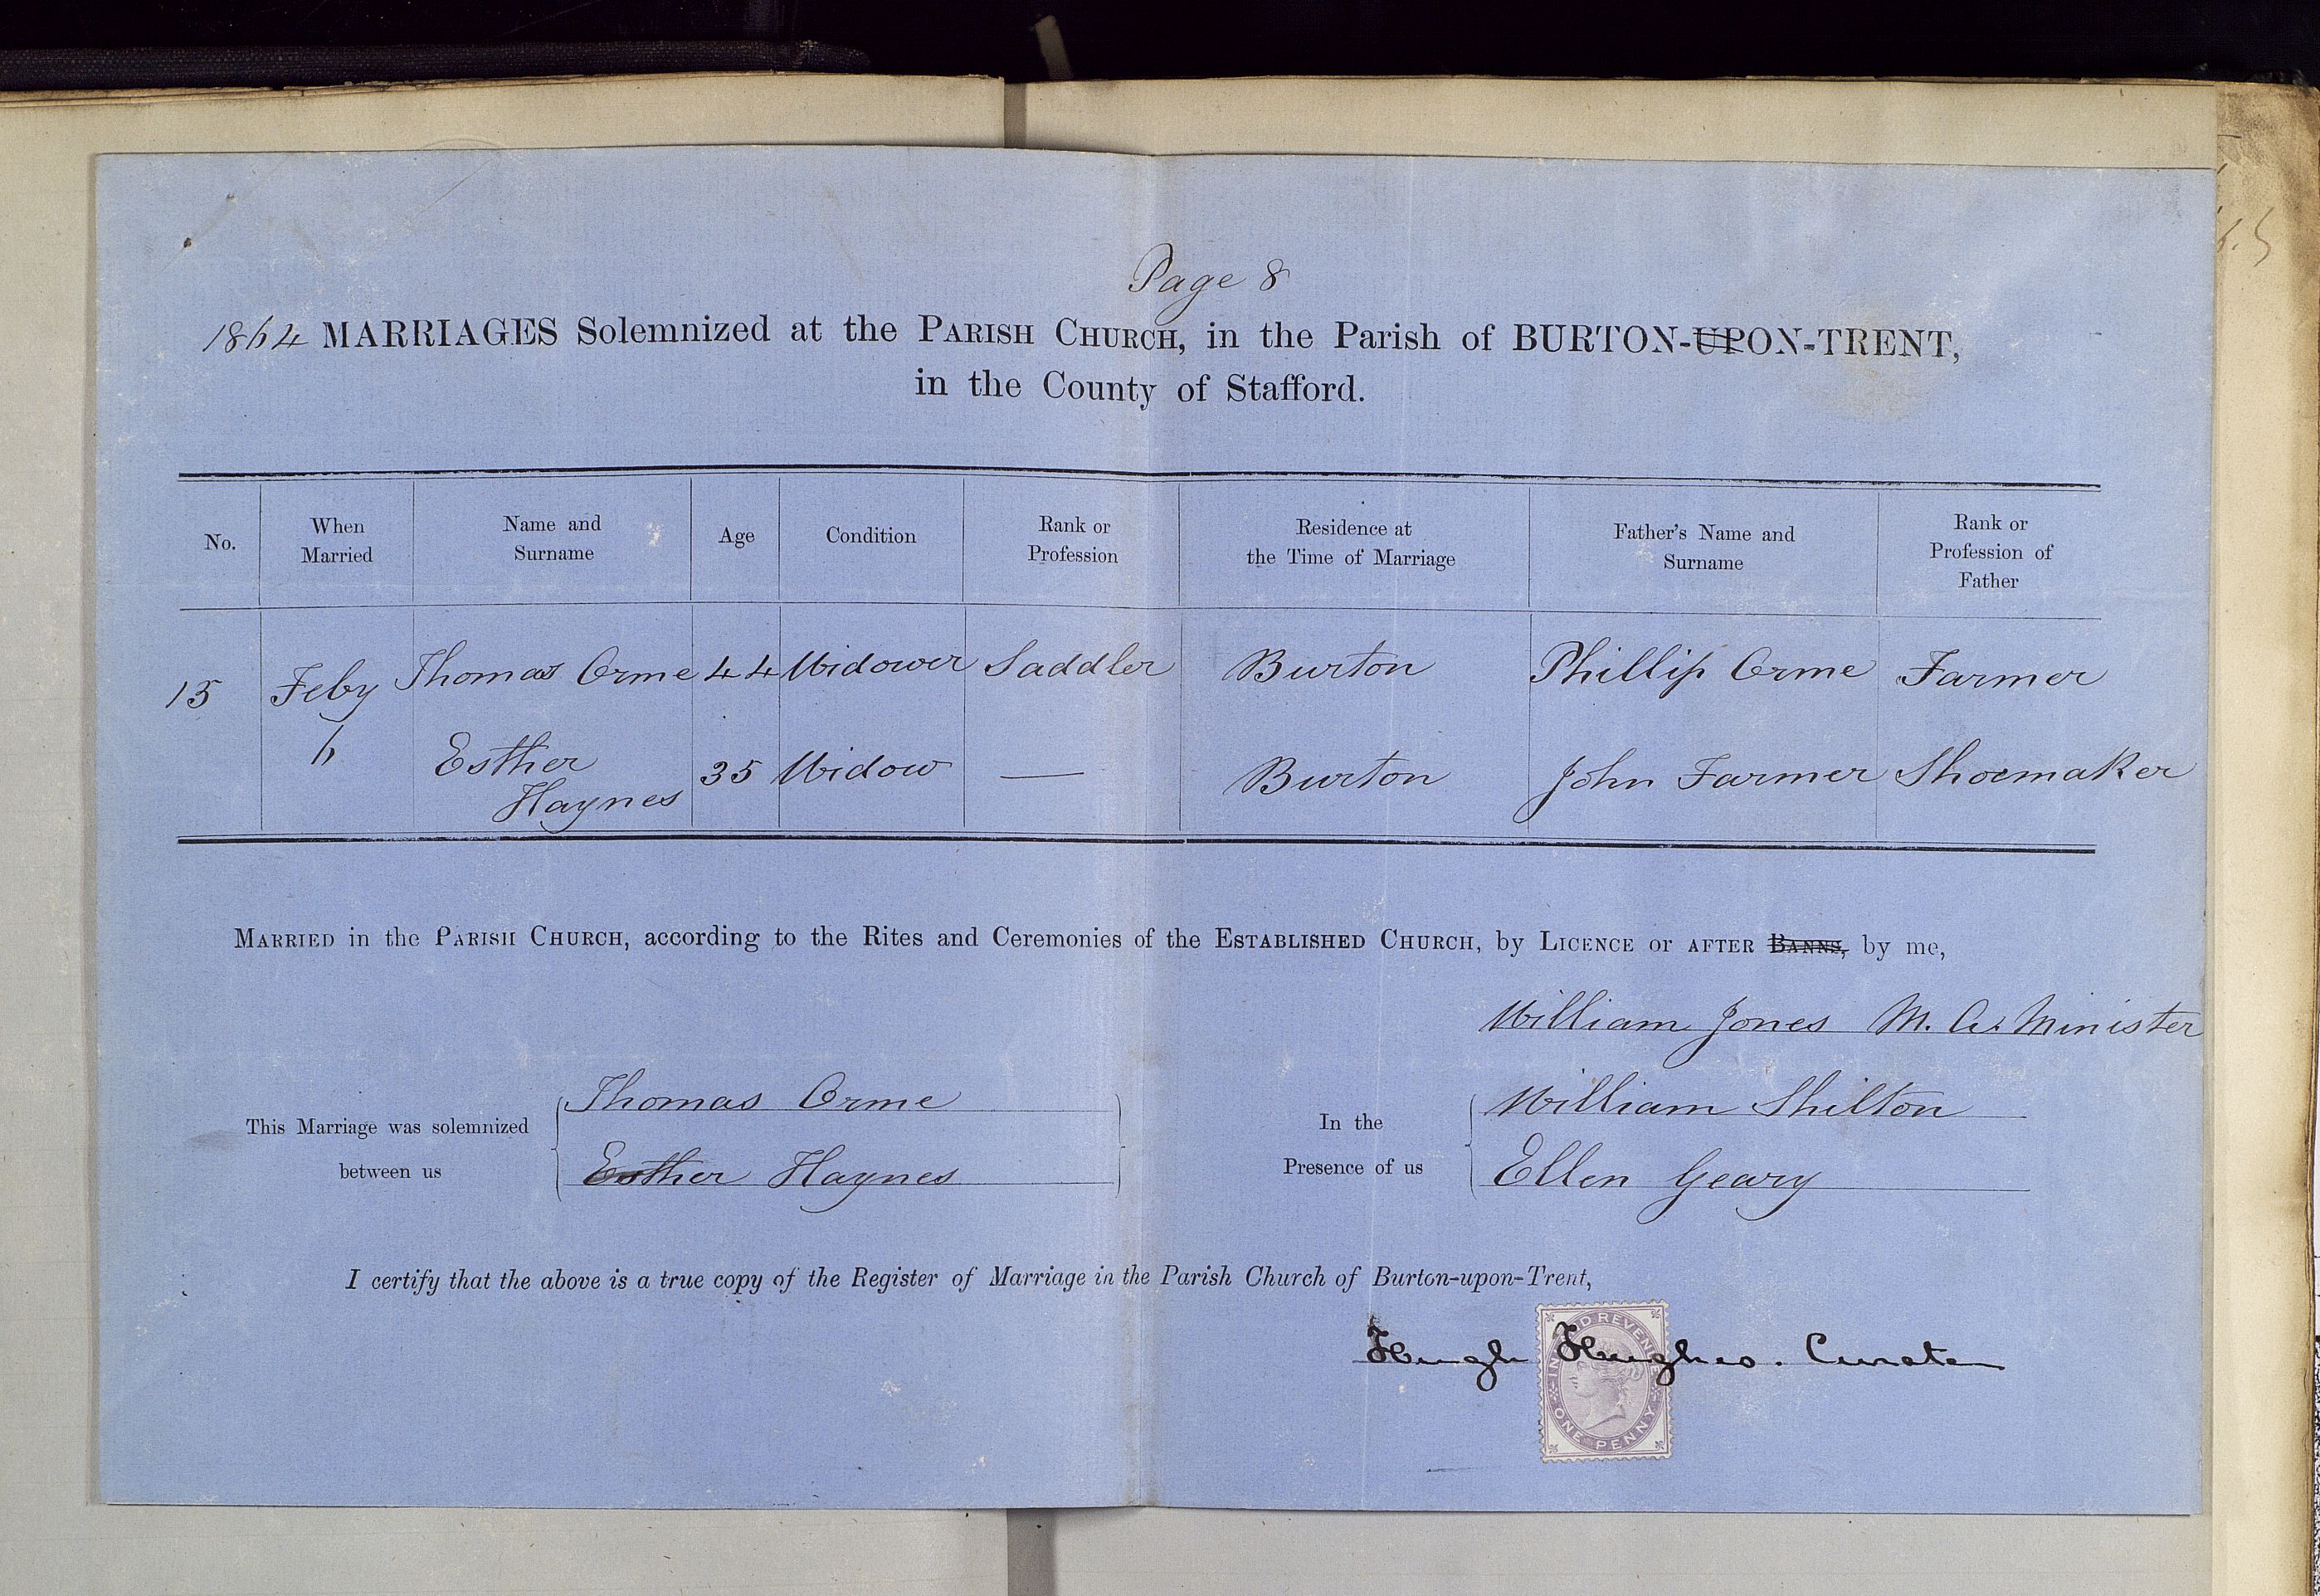 Page 8
1864 MARRIAGES Solemnized at the PARISH CHURCH, in the Parish of BURTON-UPON-TRENT,
in the County of Stafford.
No. When Married Name and Surname Age Condition Rank or Profession Residence at the Time of Marriage Father's Name and Surname Rank or Profession of Father
15 Feby 6 Thomas Orme 44 Widower Saddler Burton Phillip Orme Farmer
Esther Haynes 35 Widow — Burton John Farmer Shoemaker
MARRIED in the PARISH CHURCH, according to the Rites and Ceremonies of the ESTABLISHED CHURCH, by LICENCE or AFTER BANNS, by me,
William Jones M. A. Minister
This Marriage was solemnized between us
Thomas Orme
Esther Haynes
In the Presence of us
William Shilton
Ellen Geary
I certify that the above is a true copy of the Register of Marriage in the Parish Church of Burton-upon-Trent,
Hugh Hughes. Curate
INLAND REVENUE
ONE PENNY